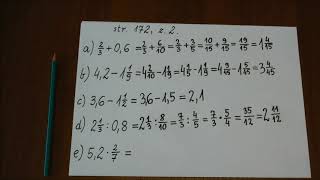 str. 172, z. 2.
a) 2/3 + 0,6 = 2/3 + 6/10 = 2/3 + 3/5 = 10/15 + 9/15 = 19/15 = 1 4/15
b) 4,2 - 1 1/5 = 4 2/10 - 1 1/5 = 4 1/5 - 1 1/5 = 4 9/15 - 1 5/15 = 3 4/15
c) 3,6 - 1 1/2 = 3,6 - 1,5 = 2,1
d) 2 1/3 : 0,8 = 2 1/3 : 8/10 = 7/3 : 4/5 = 7/3 · 5/4 = 35/12 = 2 11/12
e) 5,2 · 2/7 =